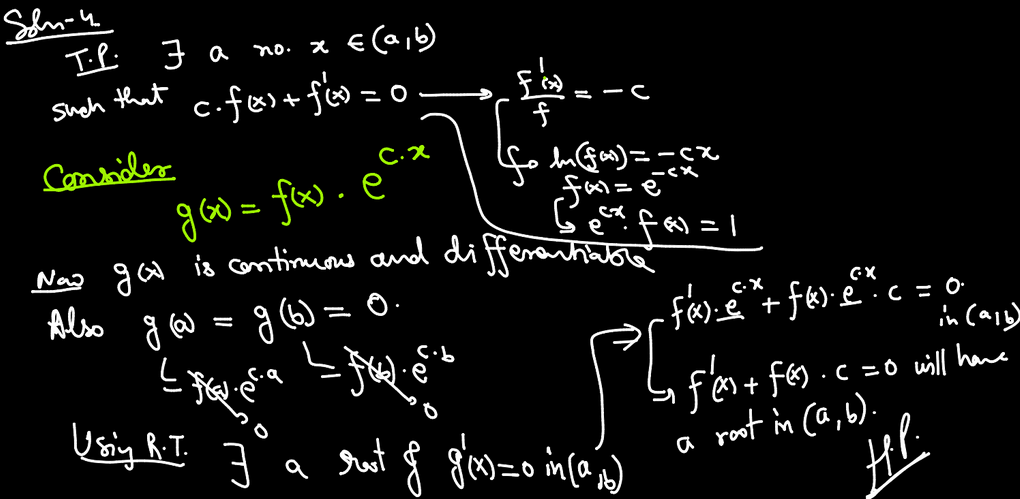 Soln-4
T.P. ∃ a no. x ∈ (a,b)
such that c.f(x) + f'(x) = 0 → f'(x)/f = -c
ln(f(x)) = -cx
f(x) = e^{-cx}
↳ e^{cx}. f(x) = 1
Consider
g(x) = f(x) . e^{c.x}
Now g(x) is continuous and differentiable
Also g(a) = g(b) = 0.
↳ = f(a).e^{c.a} → 0
↳ = f(b).e^{c.b} → 0
Using R.T. ∃ a root of g'(x)=0 in (a,b)
⇒ f'(x).e^{c.x} + f(x).e^{c.x}.c = 0.
in (a,b)
↳ f'(x) + f(x) . c = 0 will have
a root in (a,b).
H.P.